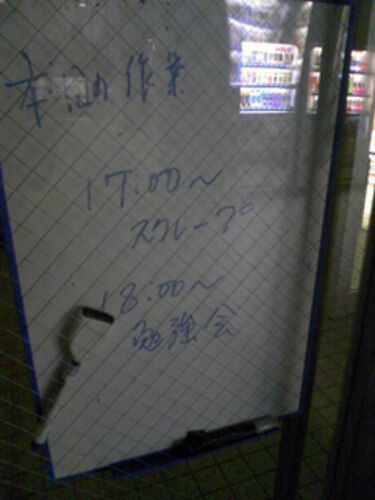 本日の作業
17:00〜
スクレープ
18:00〜
勉強会